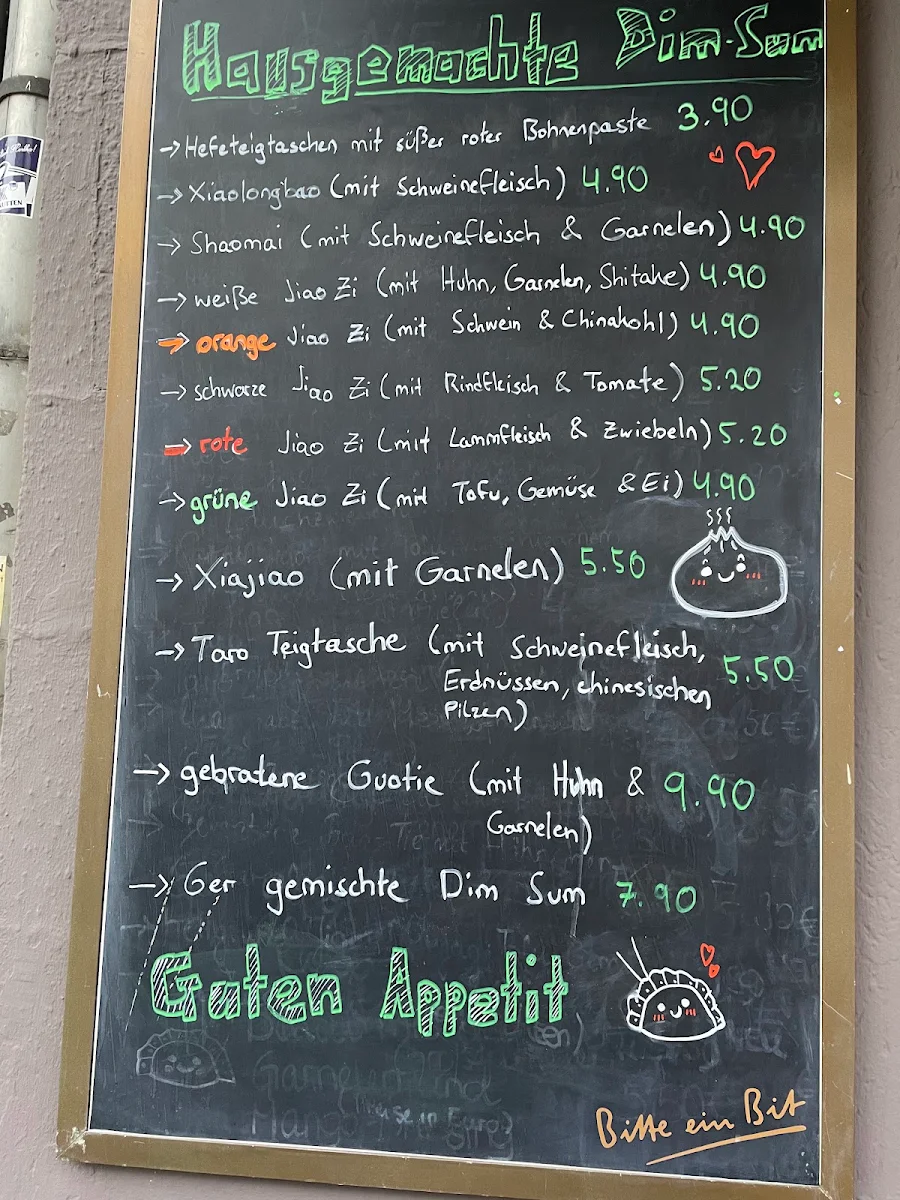 Hausgemachte Dim-Sum
→ Hefeteigtaschen mit süßer roter Bohnenpaste 3.90
→ Xiaolongbao (mit Schweinefleisch) 4.90
→ Shaomai (mit Schweinefleisch & Garnelen) 4.90
→ weiße Jiao Zi (mit Huhn, Garnelen, Shitake) 4.90
→ orange Jiao Zi (mit Schwein & Chinakohl) 4.90
→ schwarze Jiao Zi (mit Rindfleisch & Tomate) 5.20
→ rote Jiao Zi (mit Lammfleisch & Zwiebeln) 5.20
→ grüne Jiao Zi (mit Tofu, Gemüse & Ei) 4.90
→ Xiajiao (mit Garnelen) 5.50
→ Taro Teigtasche (mit Schweinefleisch, 5.50
Erdnüssen, chinesischen
Pilzen)
→ gebratene Guotie (mit Huhn & 9.90
Garnelen)
→ 6er gemischte Dim Sum 7.90
Guten Appetit
Bitte ein Bit